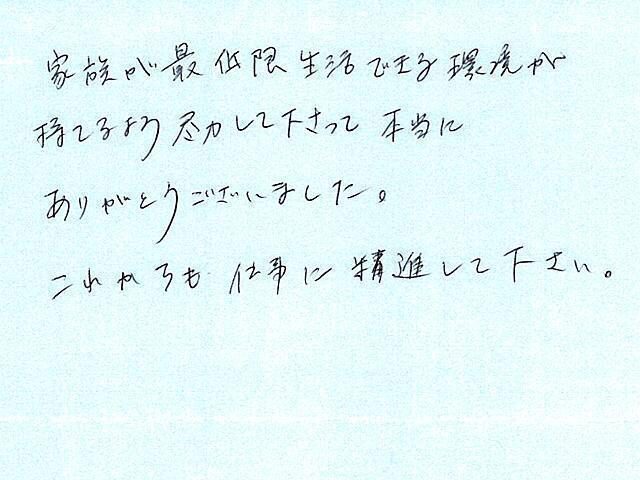 家族が最低限生活できる環境が
持てるよう尽力して下さって本当に
ありがとうございました。
これからも仕事に精進して下さい。